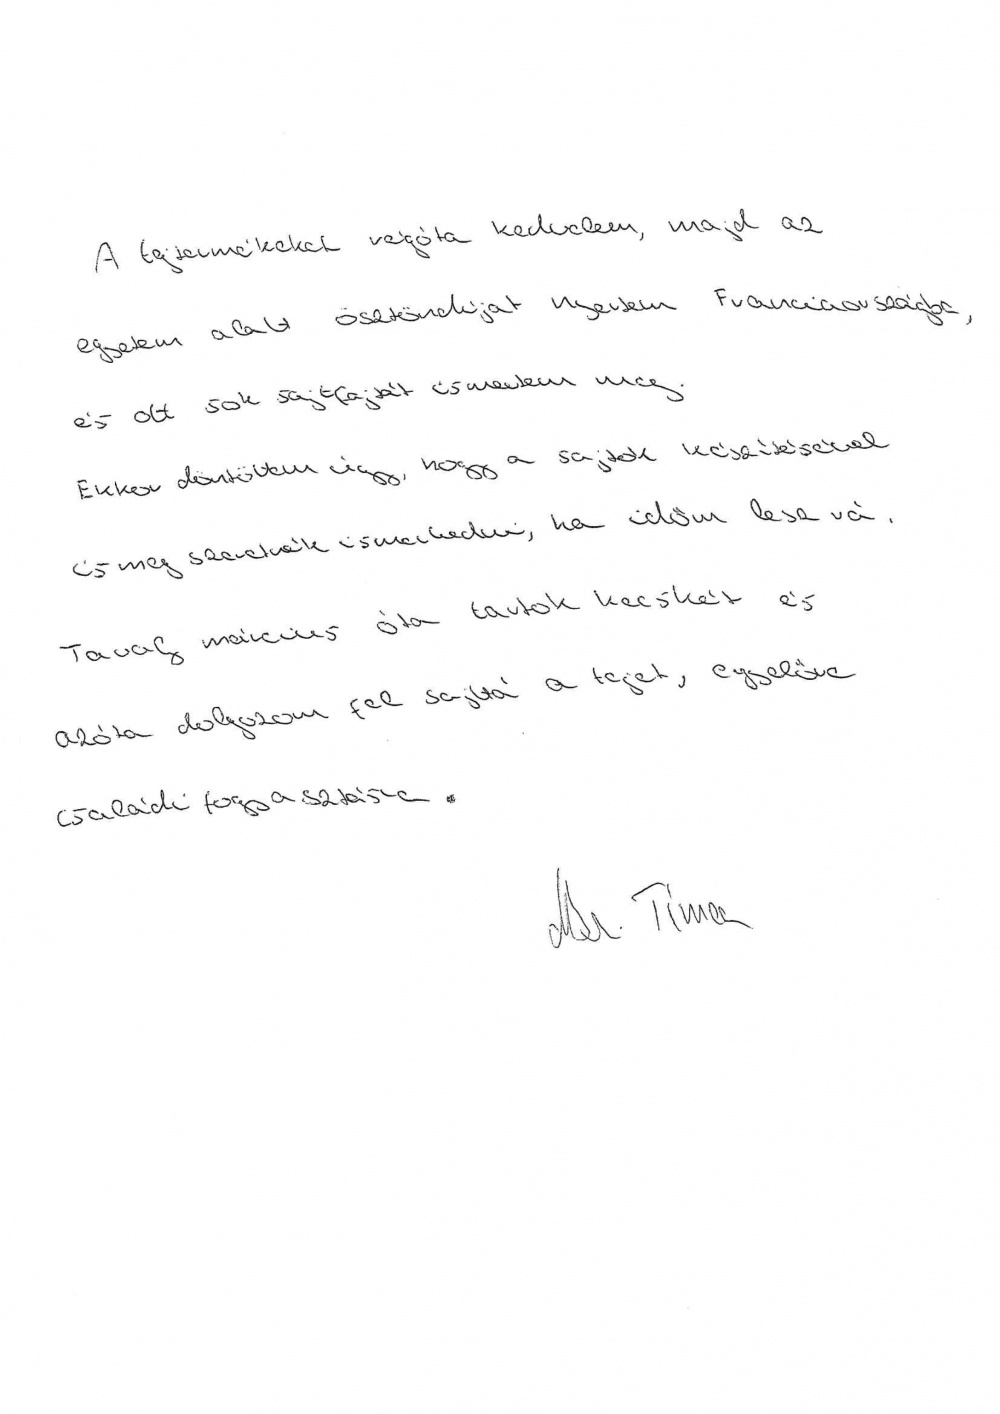 A tejtermékeket régóta kedvelem, majd az
egyetem alatt ösztöndíjat nyertem Franciaországba,
és ott sok sajtfajtát ismertem meg.
Ekkor döntöttem úgy, hogy a sajtok készítésével
is meg szeretnék ismerkedni, ha időm lesz rá.
Tavaly március óta tartok kecskét és
azóta dolgozom fel sajttá a tejet, egyelőre
családi fogyasztásra.
Tímea